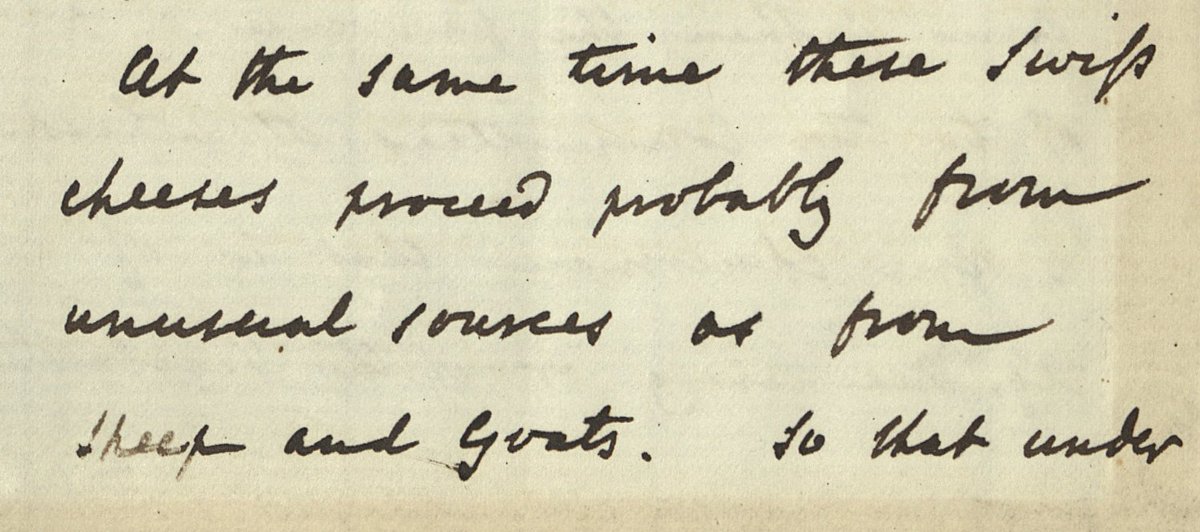 At the same time these Swiſs
cheeses proceed probably from
unusual sources as from
Sheep and Goats. So that under